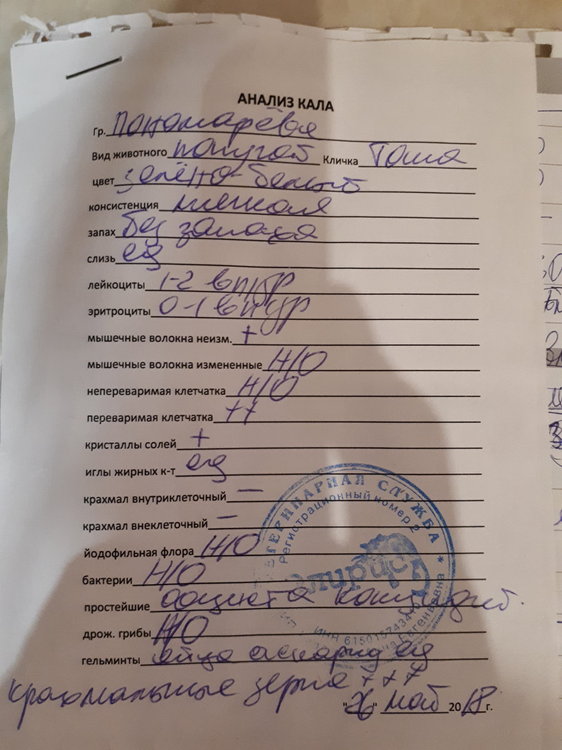 АНАЛИЗ КАЛА
Гр. Пономарёва
Вид животного попугай Кличка Гоша
цвет зелёно-белый
консистенция мягкая
запах без запаха
слизь ед
лейкоциты 1-2 в п/зр
эритроциты 0-1 в п/зр
мышечные волокна неизм. +
мышечные волокна измененные Н/О
непереваримая клетчатка Н/О
переваримая клетчатка ++
кристаллы солей +
иглы жирных к-т ед
крахмал внутриклеточный —
крахмал внеклеточный —
йодофильная флора Н/О
бактерии Н/О
простейшие ооциста кокцидий.
дрож. грибы Н/О
гельминты яйца аскарид ед
крахмальные зерна +++
"26" май 2018 г.
ВЕТЕРИНАРНАЯ СЛУЖБА *
Регистрационный номер 2
ИНН 615015743440
Евгеньевна